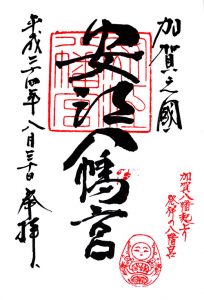 加賀之國
安江八幡宮
平成二十四年八月三十日
奉拝
加賀八幡起上り
発祥の八幡宮